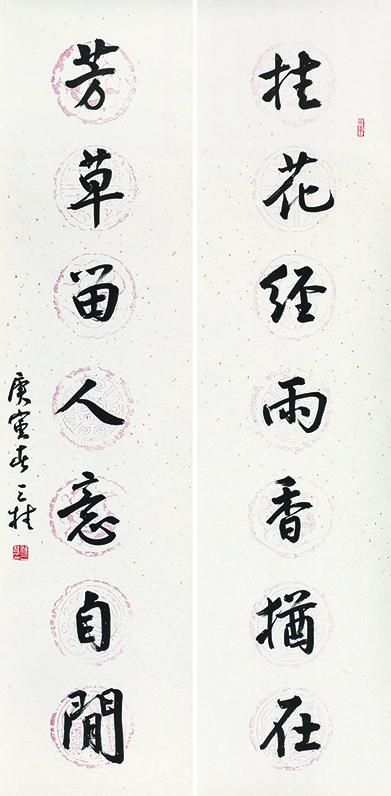 桂花經雨香猶在
芳草留人意自閒
庚寅春